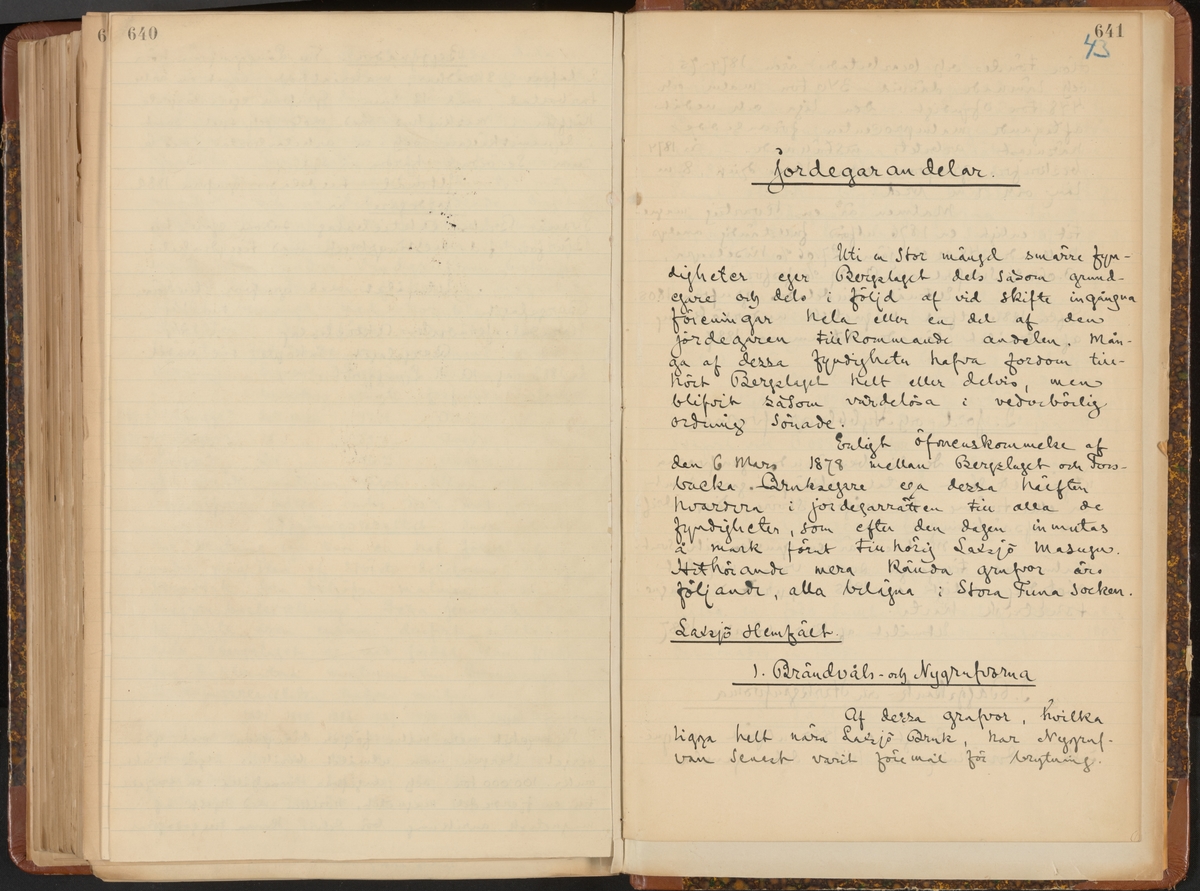 6
640
641
43
Jordegarandelar.
Uti en stor mängd smärre fyn-
digheter eger Bergslaget dels såsom grund-
egare och dels i följd af vid skifte ingångna
föreningar hela eller en del af den
jordegaren tillkommande andelen. Mån-
ga af dessa fyndigheter hafva fordom till-
hört Bergslaget helt eller delvis, men
blifvit såsom värdelösa i vederbörlig
ordning sönade.
Enligt öfverenskommelse af
den 6 Mars 1878 mellan Bergslaget och Fors-
backa Bruksegare ega dessa hälften
hvardera i jordegarrätten till alla de
fyndigheter, som efter den dagen inmutas
å mark förut tillhörig Laxsjö Masugn.
Hithörande mera kända grufvor äro
följande, alla belägna i Stora Tuna Socken.
Laxsjö Hemfält.
1. Brändvåls- och Nygrufvorna
Af dessa grufvor, hvilka
ligga helt nära Laxsjö Bruk, har Nygruf-
van senast varit föremål för brytning.